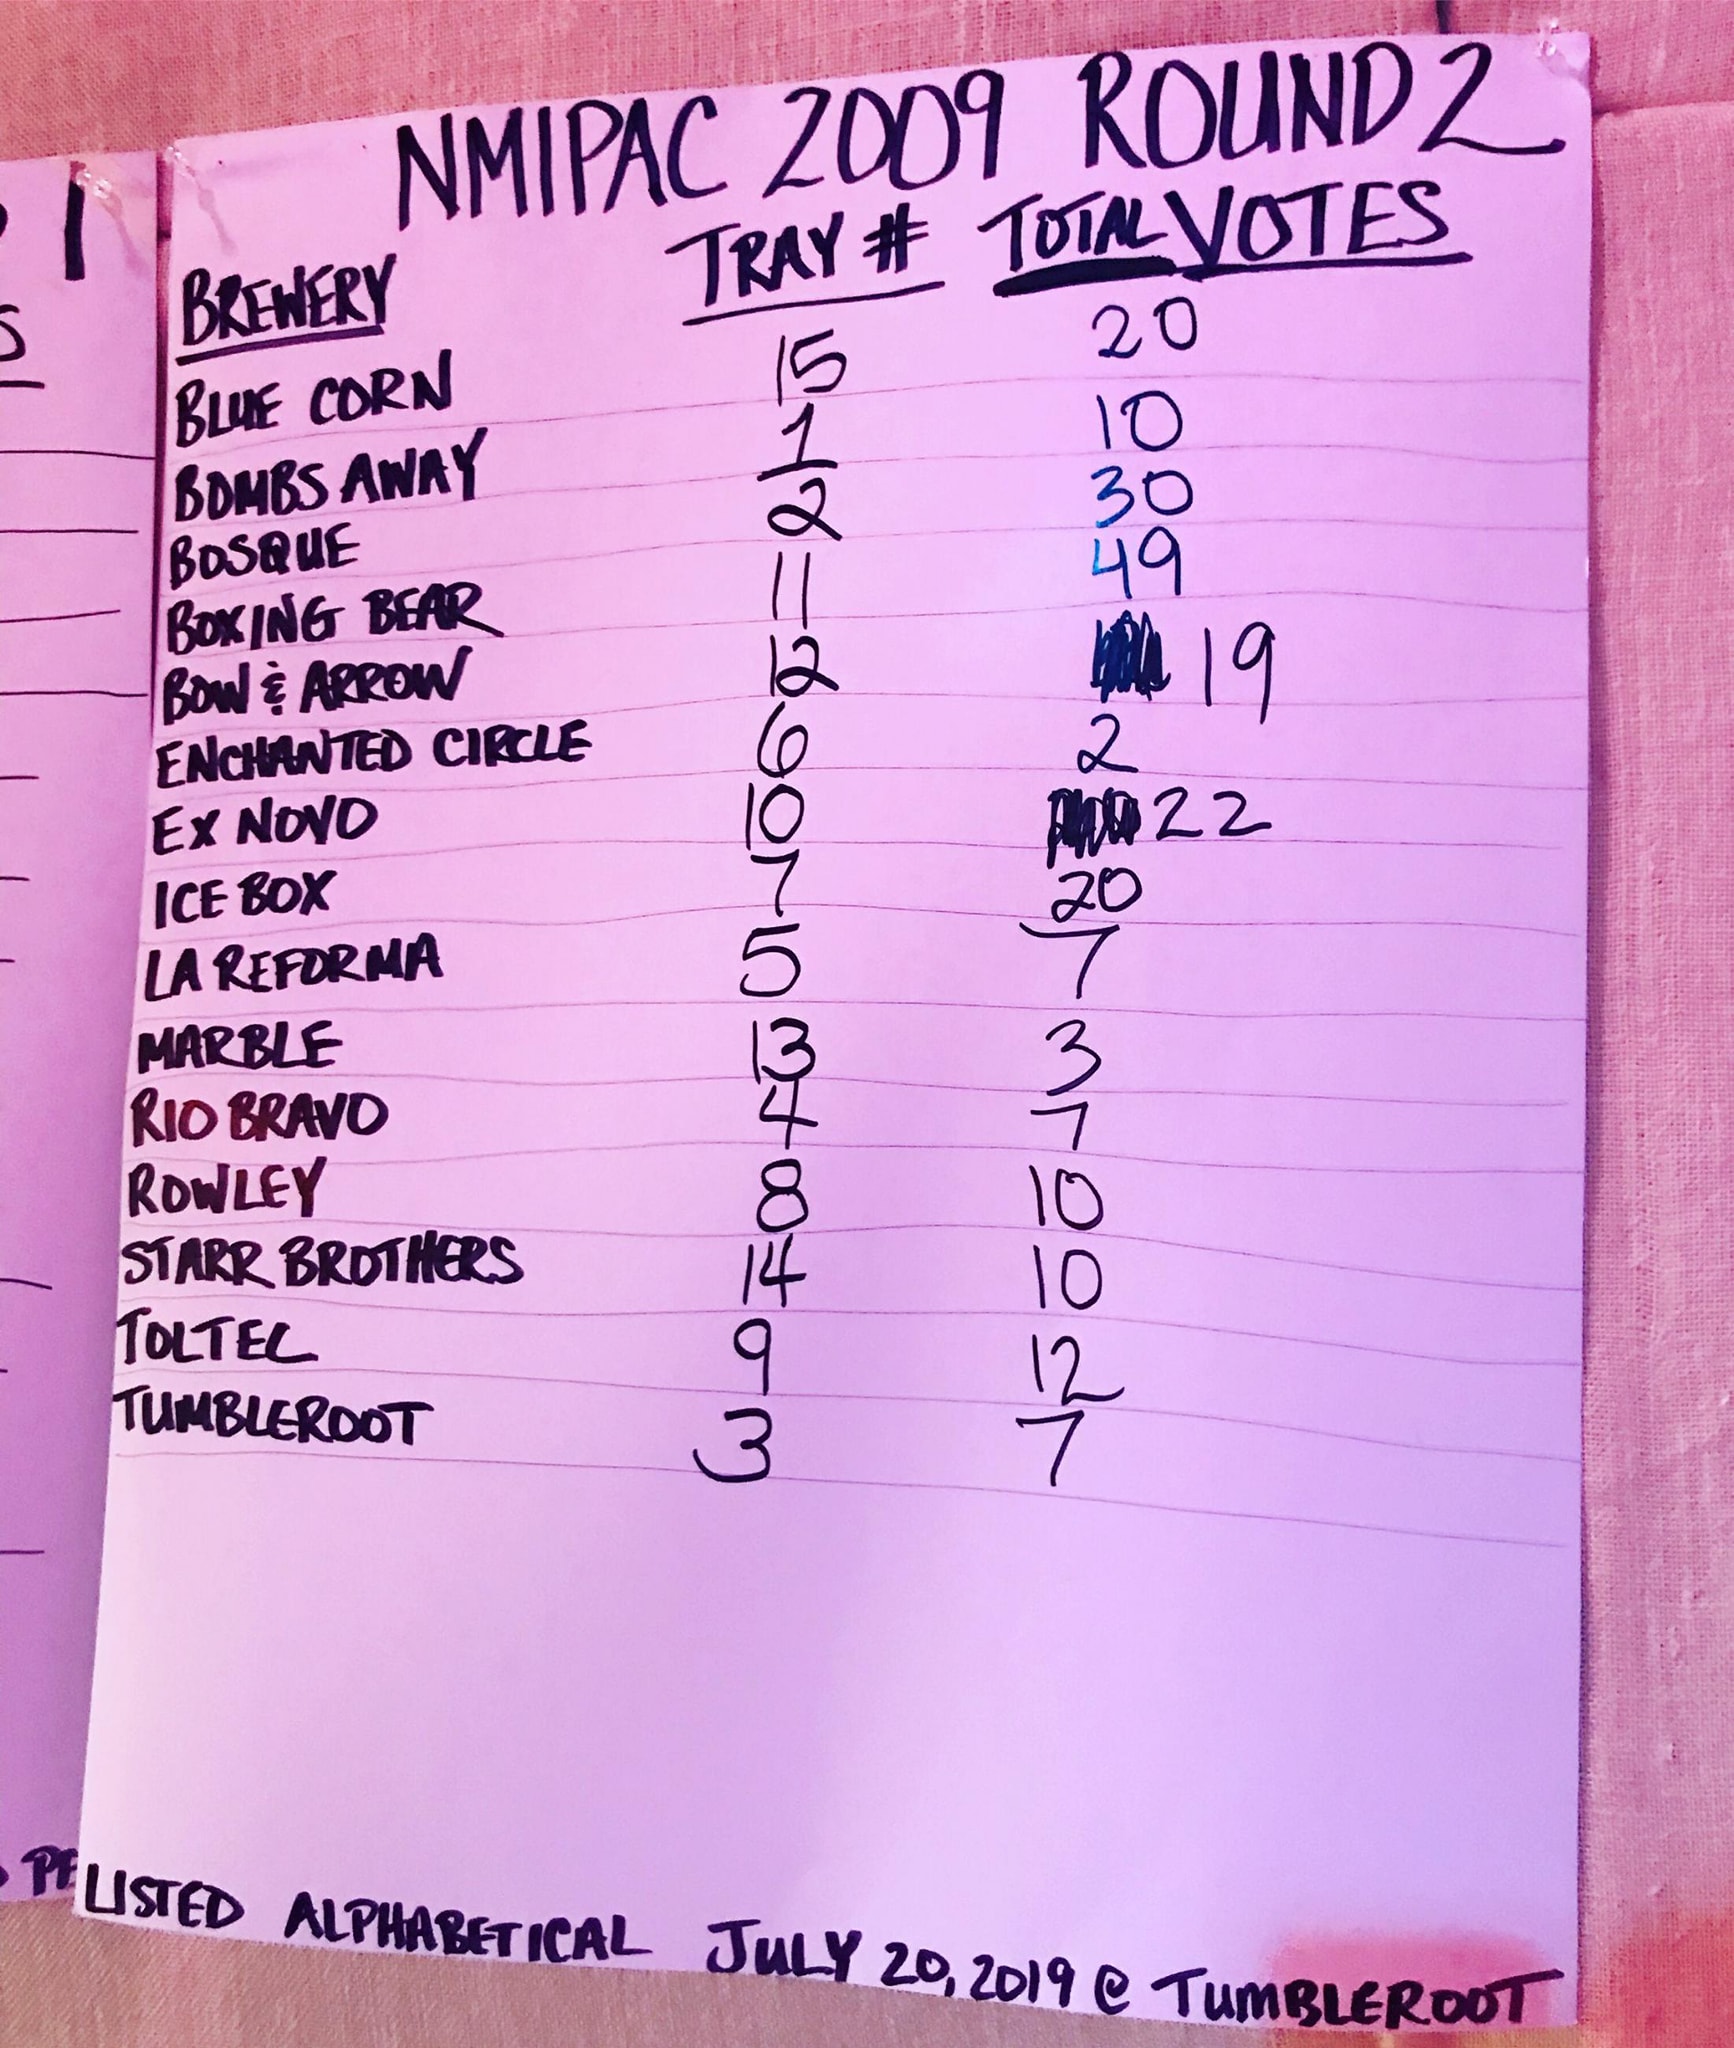 NMIPAC 2009 ROUND 2
BREWERY TRAY # TOTAL VOTES
BLUE CORN 15 20
BOMBS AWAY 1 10
BOSQUE 2 30
BOXING BEAR 11 49
BOW & ARROW 12 19
ENCHANTED CIRCLE 6 2
EX NOVO 10 22
ICE BOX 7 20
LA REFORMA 5 7
MARBLE 13 3
RIO BRAVO 4 7
ROWLEY 8 10
STARR BROTHERS 14 10
TOLTEC 9 12
TUMBLEROOT 3 7
LISTED ALPHABETICAL JULY 20, 2019 @ TUMBLEROOT